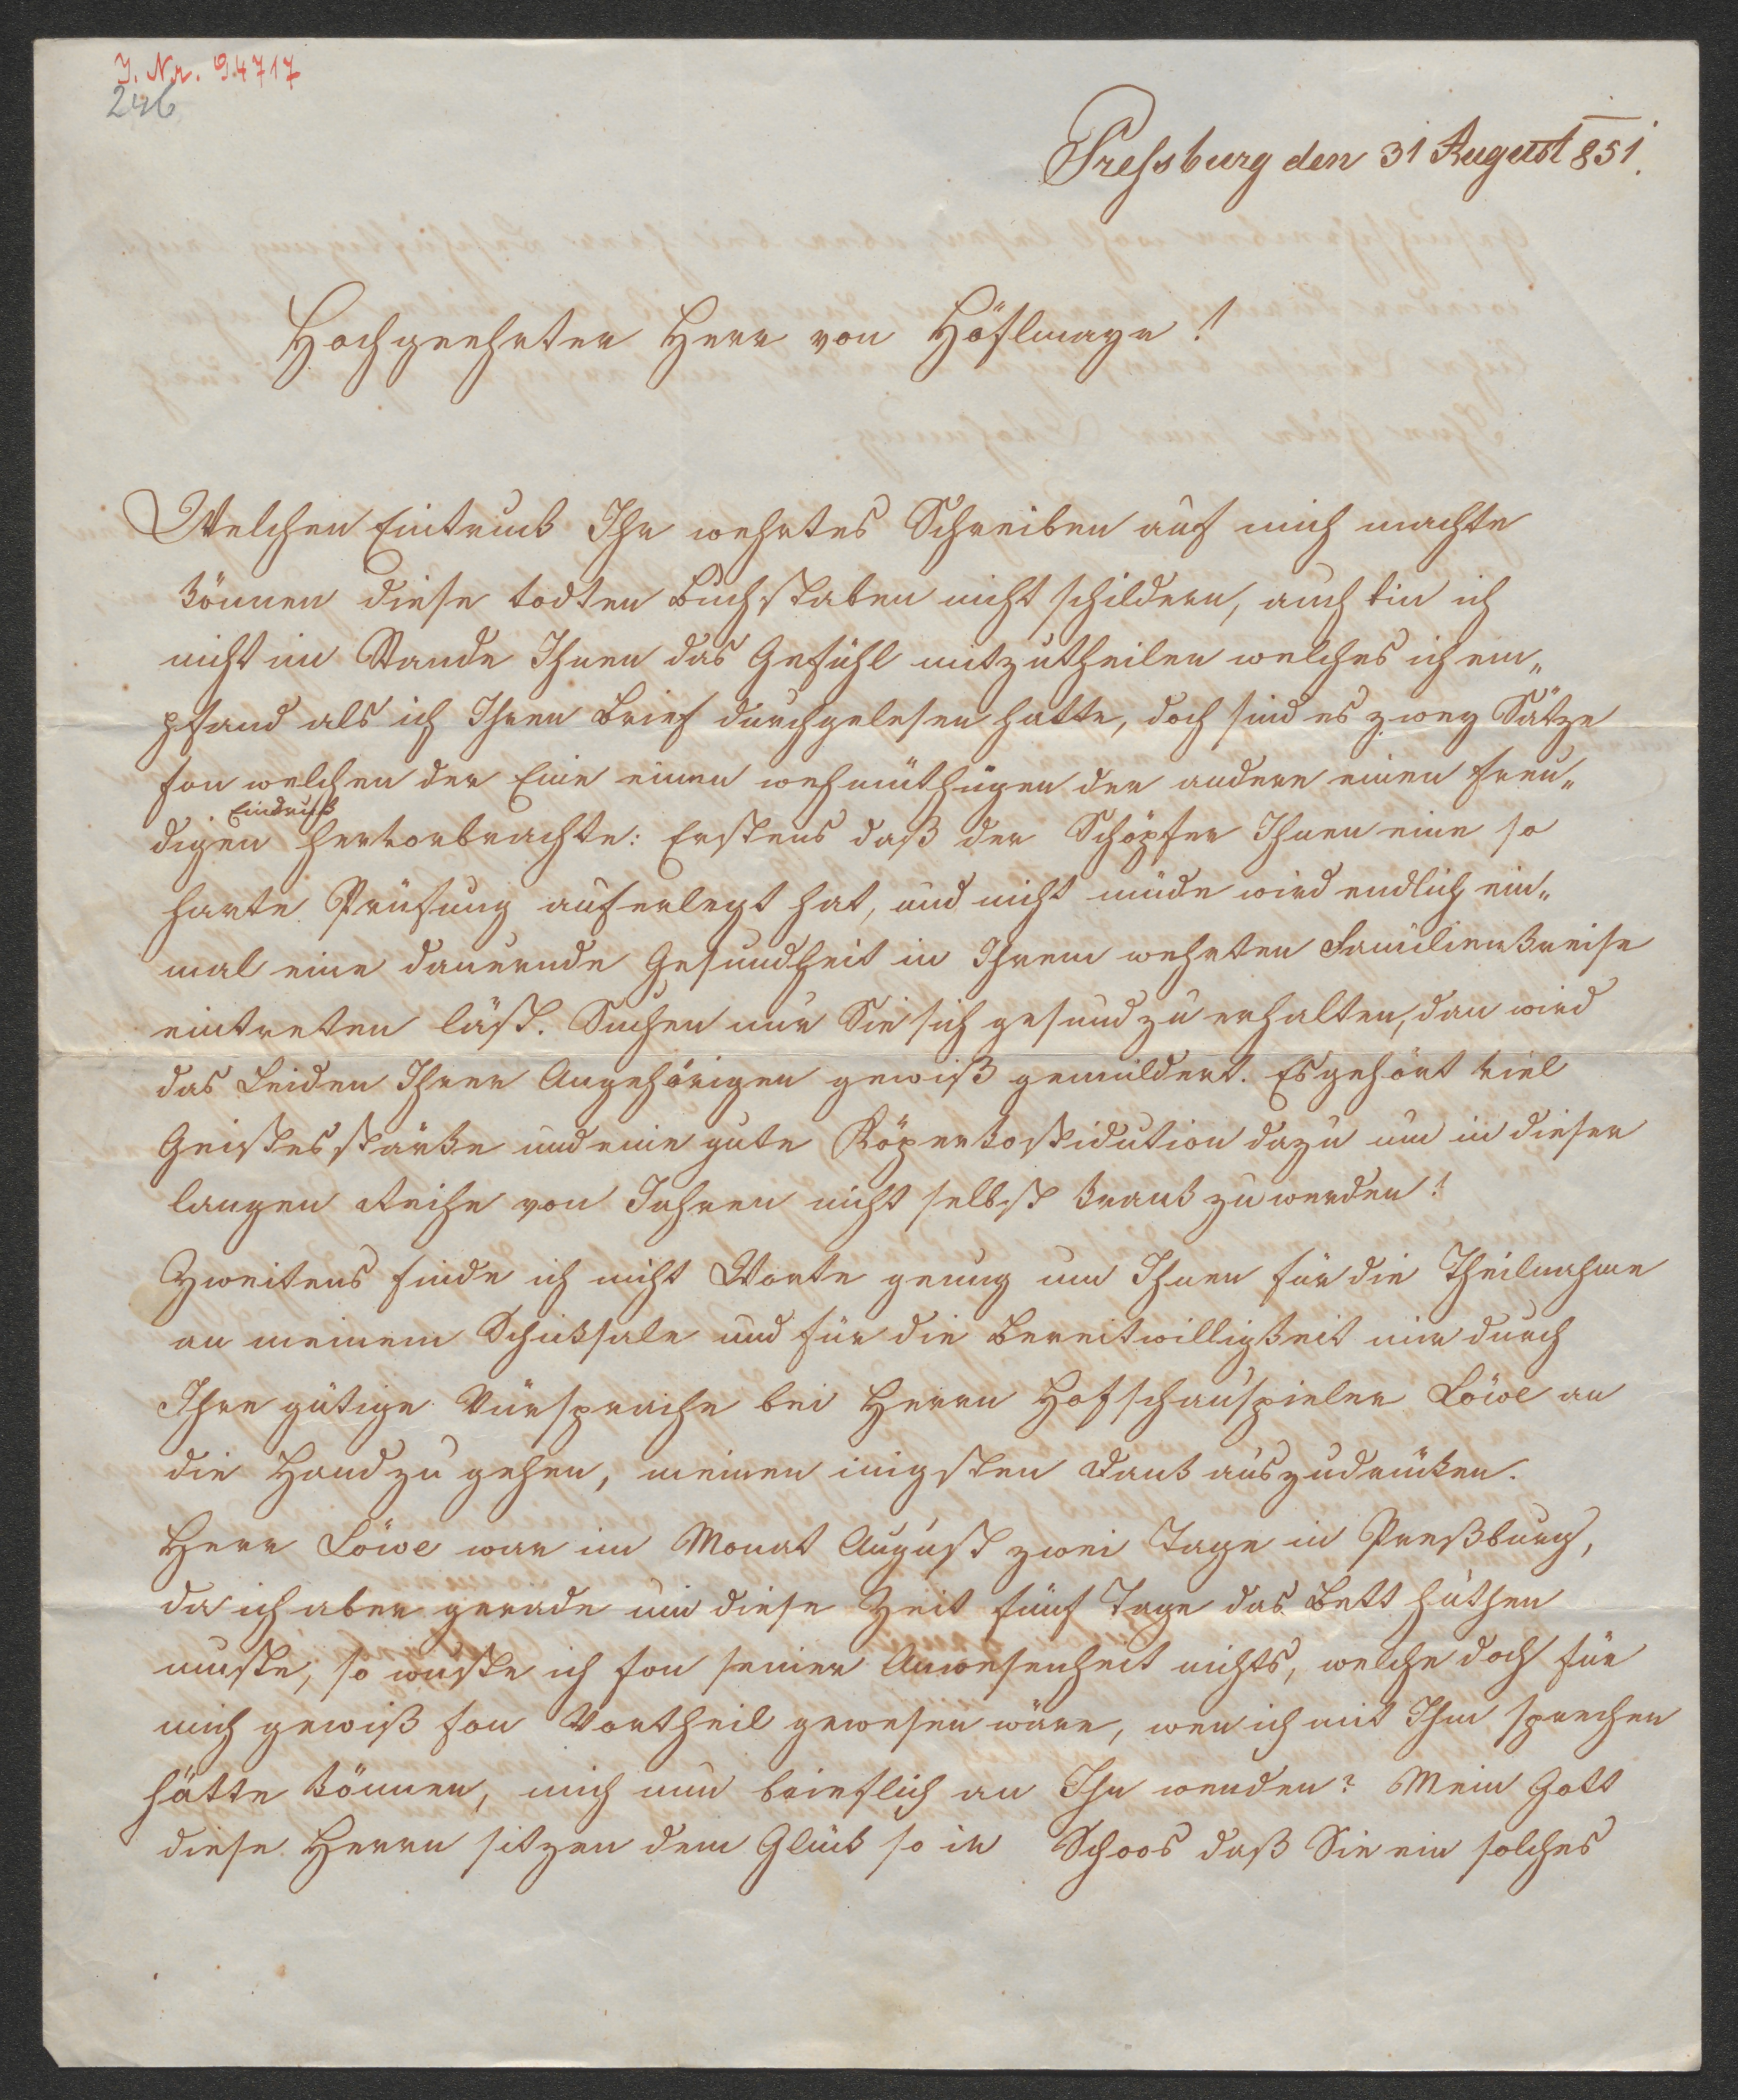 J. Nr. 94717
246
Preſsburg den 31 August 851.
Hochgeehrter Herr von Höflmayr!
Welchen Eintruck Ihr wehrtes Schreiben auf mich machte
können diese todten Buchstaben nicht schildern, auch bin ich
nicht im Stande Ihnen das Gefühl mitzutheilen welches ich em„
pfand als ich Ihren Brief durchgelesen hatte, doch sind es zwey Sätze
fon welchen der Eine einen wehmüthigen der andere einen freu„
Eindruck
digen herforbrachte: Erstens daß der Schöpfer Ihnen eine so
harte Prüfung auferlegt hat, und nicht müde wird endlich ein„
mal eine dauernde Gesundheit in Ihrem wehrten Familienkreise
eintreten läst. Suchen nur Sie sich gesund zu erhalten, dan wird
das Leiden Ihrer Angehörigen gewiß gemildert. Es gehört viel
Geistesstärke und eine gute Köperkostidution dazu um in dieser
langen Reihe von Jahren nicht selbst krank zu werden!
Zweitens finde ich nicht Worte genug um Ihnen für die Theilnahme
an meinem Schicksale und für die Bereitwilligkeit mir durch
Ihre gütige Vürsprache bei Herrn Hofschauspieler Löwe an
die Hand zu gehen, meinen inigsten Dank auszudrüken.
Herr Löwe war im Monat August zwei Tage in Preßburg,
da ich aber gerade um diese Zeit fünf Tage das Bett hüthen
muste, so wuste ich fon seiner Anwesenheit nichts, welche doch für
mich gewiß fon Vortheil gewesen wäre, wen ich mit Ihm sprechen
hätte können, mich nun brieflich an Ihn wenden? Mein Gott
diese Herrn sitzen dem Glück so im Schoos daß Sie ein solches